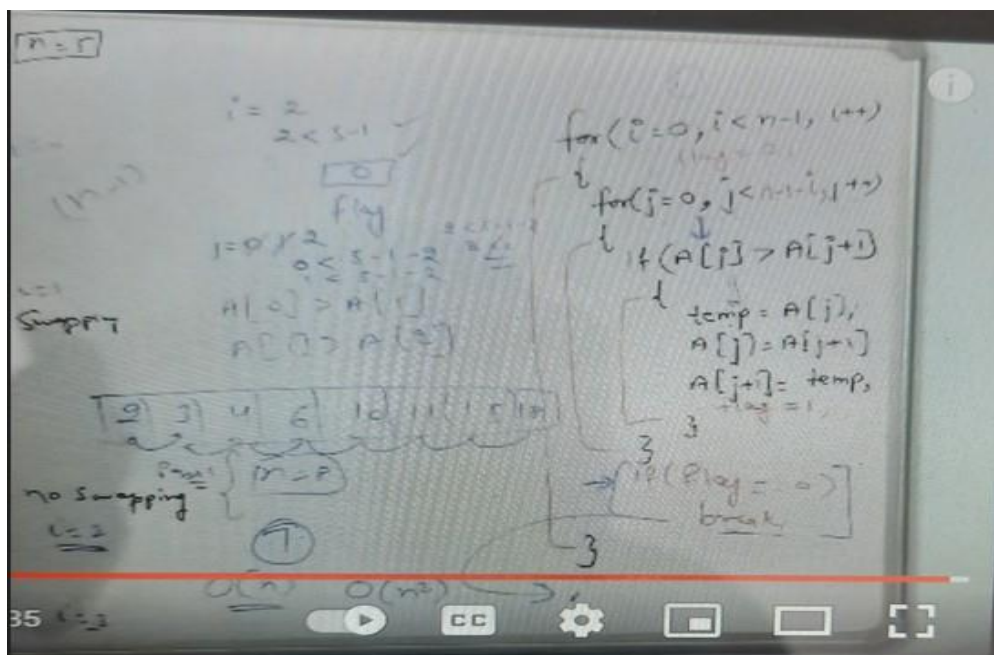 n = 5
i = 2
2 < 5-1
(n-1)
0
flag
j = 0 1 2
0 < 5-1-2
1 < 5-1-2
A[0] > A[1]
A[1] > A[2]
i=1
Swapping
3 4 6 10 11 15
n = 8
no swapping
i=2
7
O(n) O(n²)
i=3
for(i=0, i<n-1, i++)
{
for(j=0, j<n-1-i, j++)
{
if (A[j] > A[j+1]
{
temp = A[j],
A[j] = A[j+1]
A[j+1] = temp,
flag = 1,
}
}
if (flag = = 0)
break,
}
35
CC
i